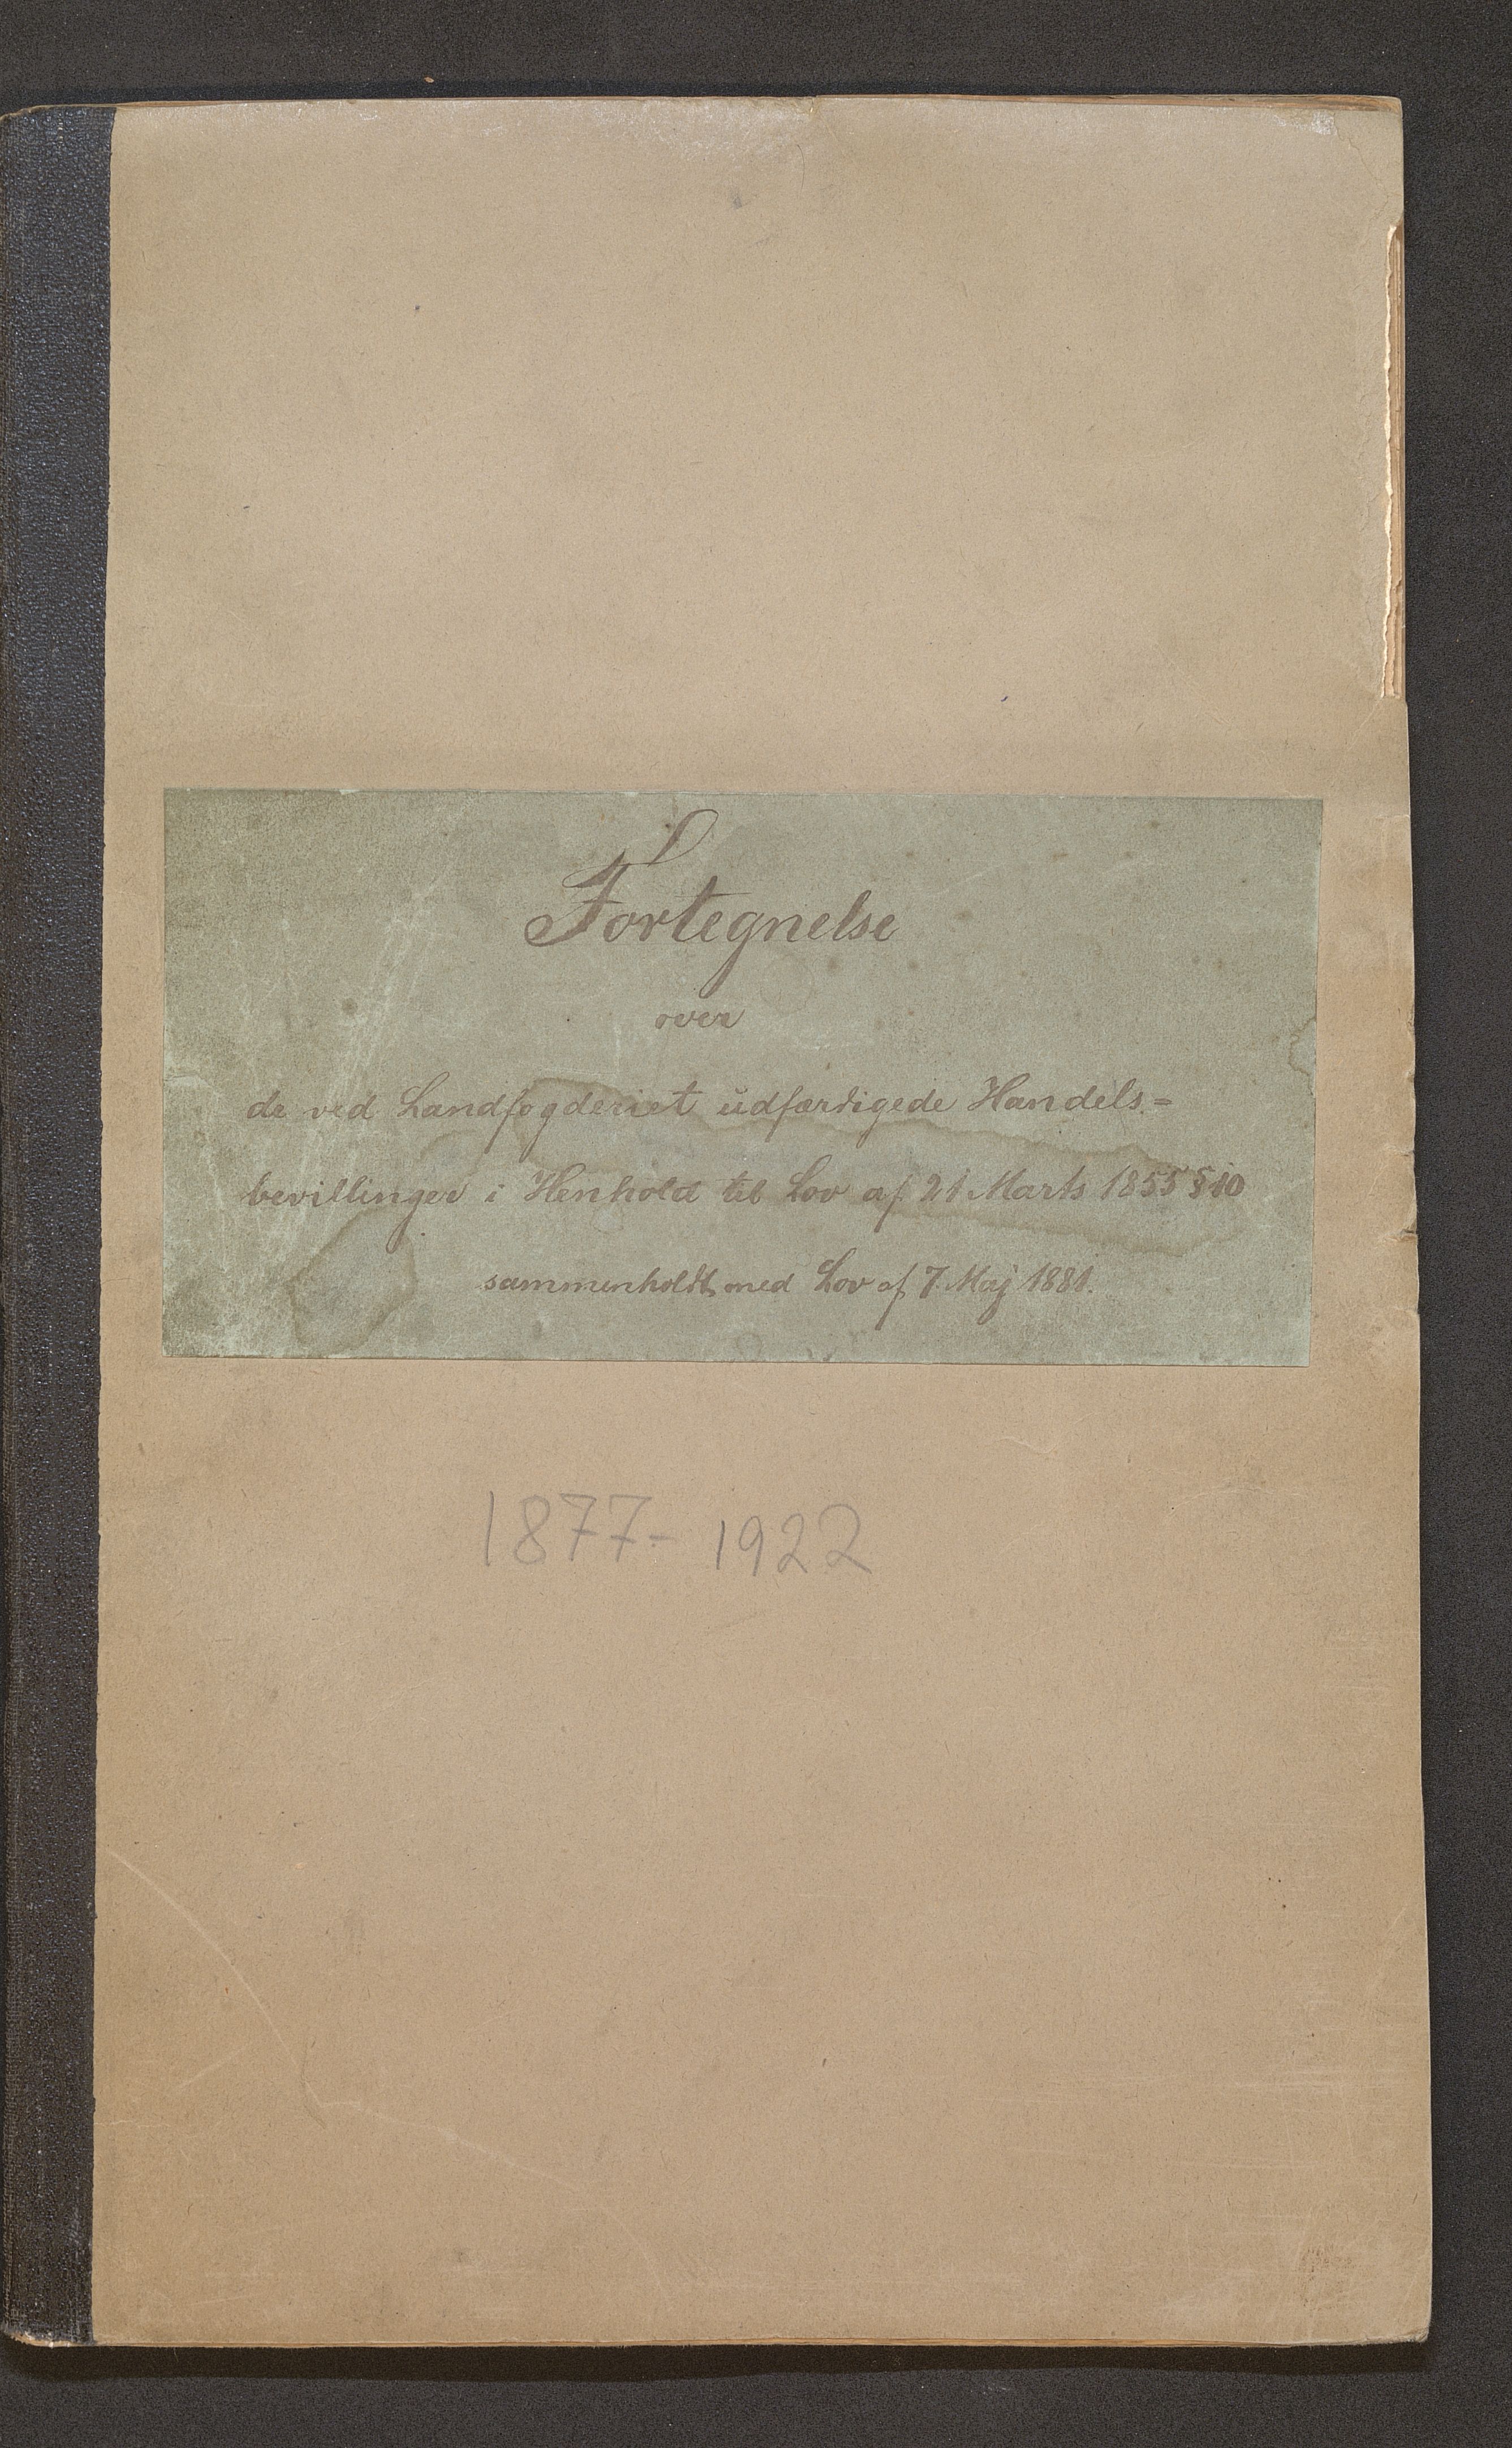 Fortegnelse
over
de ved Landfogderiet udfærdigede Handels=
bevillinger i Henhold til Lov af 21 Marts 1855 § 10
sammenholdt med Lov af 7. Maj 1881.
1877- 1922